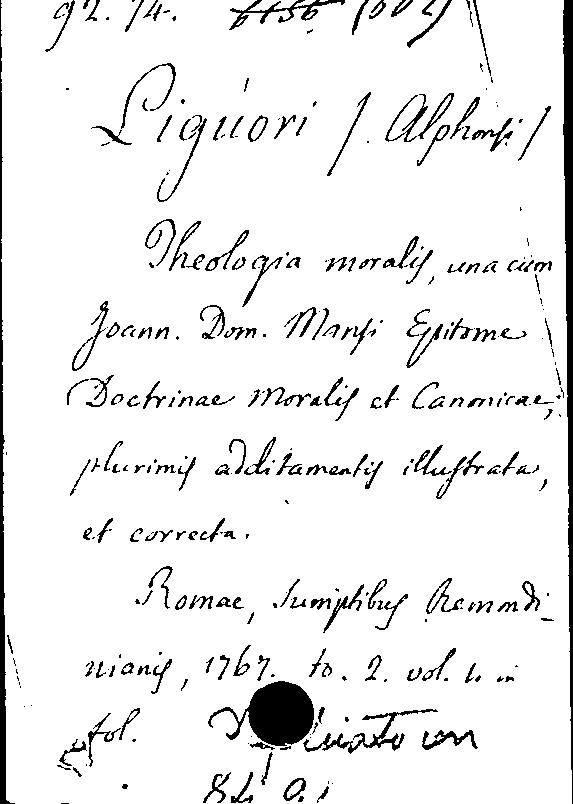 92. 74.
Liguori / Alphonsi /
Theologia moralis, una cum
Joann. Dom. Mansi Epitome
Doctrinae Moralis et Canonicae,
plurimis additamentis illustrata,
et correcta.
Romae, Sumptibus Remondi-
nianis, 1767. to. 2. vol. in
fol.